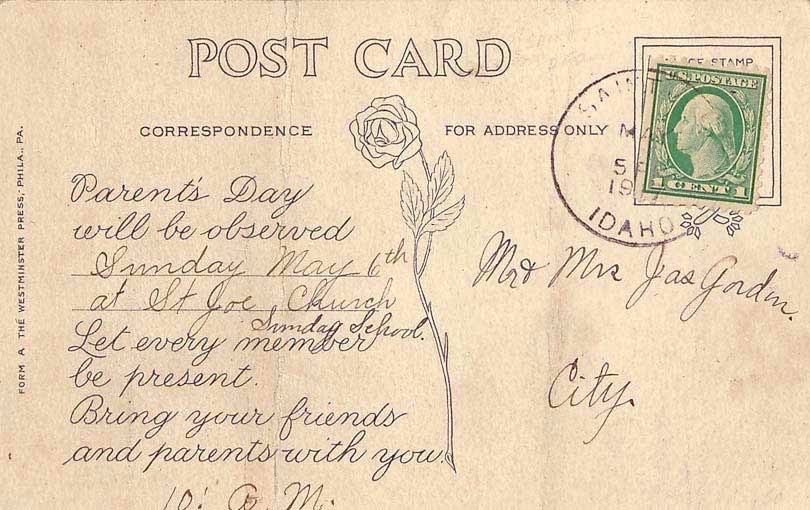 POST CARD
CORRESPONDENCE
FOR ADDRESS ONLY
Parent's Day
will be observed
Sunday May 6th
at St Joe Church
Sunday School.
Let every member
be present.
Bring your friends
and parents with you.
10: A.M.
Mr & Mrs Jas Gordon.
City.
STAMP
U.S. POSTAGE
1 CENT 1
SAINT
MAY
5 P
19
IDAHO
FORM A THE WESTMINSTER PRESS, PHILA., PA.